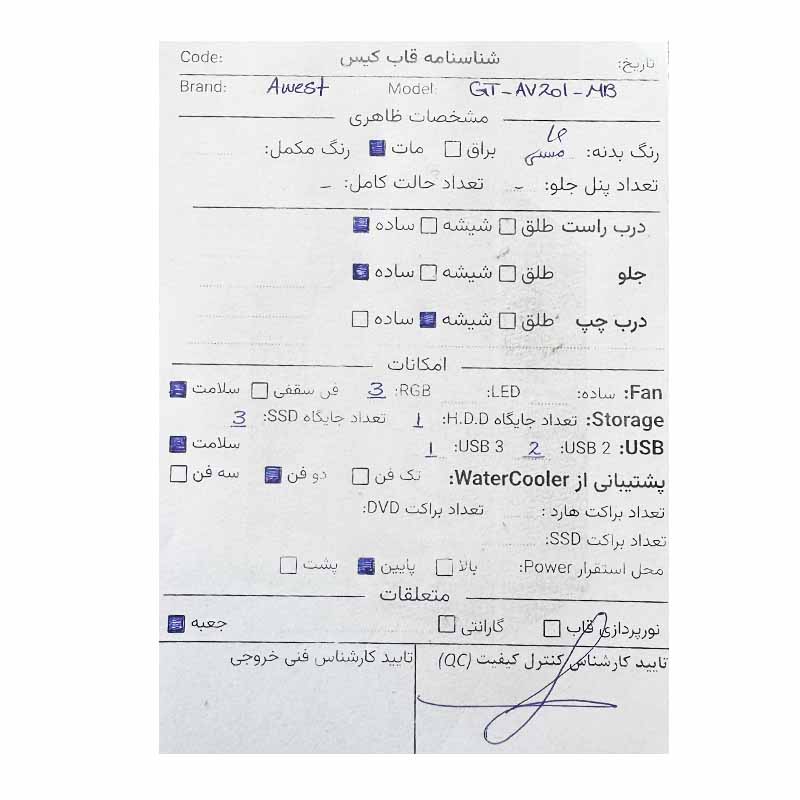 Code: شناسنامه قاب کیس تاریخ:
Brand: Awest Model: GT-AV201-MB
مشخصات ظاهری
رنگ بدنه: مشکی براق مات رنگ مکمل:
تعداد پنل جلو: - تعداد حالت کامل: -
درب راست طلق شیشه ساده
جلو طلق شیشه ساده
درب چپ طلق شیشه ساده
امکانات
Fan: ساده: LED: RGB: 3 فن سقفی سلامت
Storage: تعداد جایگاه H.D.D: 1 تعداد جایگاه SSD: 3
USB: USB 2: 2 USB 3: 1 سلامت
پشتیبانی از WaterCooler: تک فن دو فن سه فن
تعداد براکت هارد: تعداد براکت DVD:
تعداد براکت SSD:
محل استقرار Power: بالا پایین پشت
متعلقات
نورپردازی قاب گارانتی جعبه
تایید کارشناس کنترل کیفیت (QC) تایید کارشناس فنی خروجی